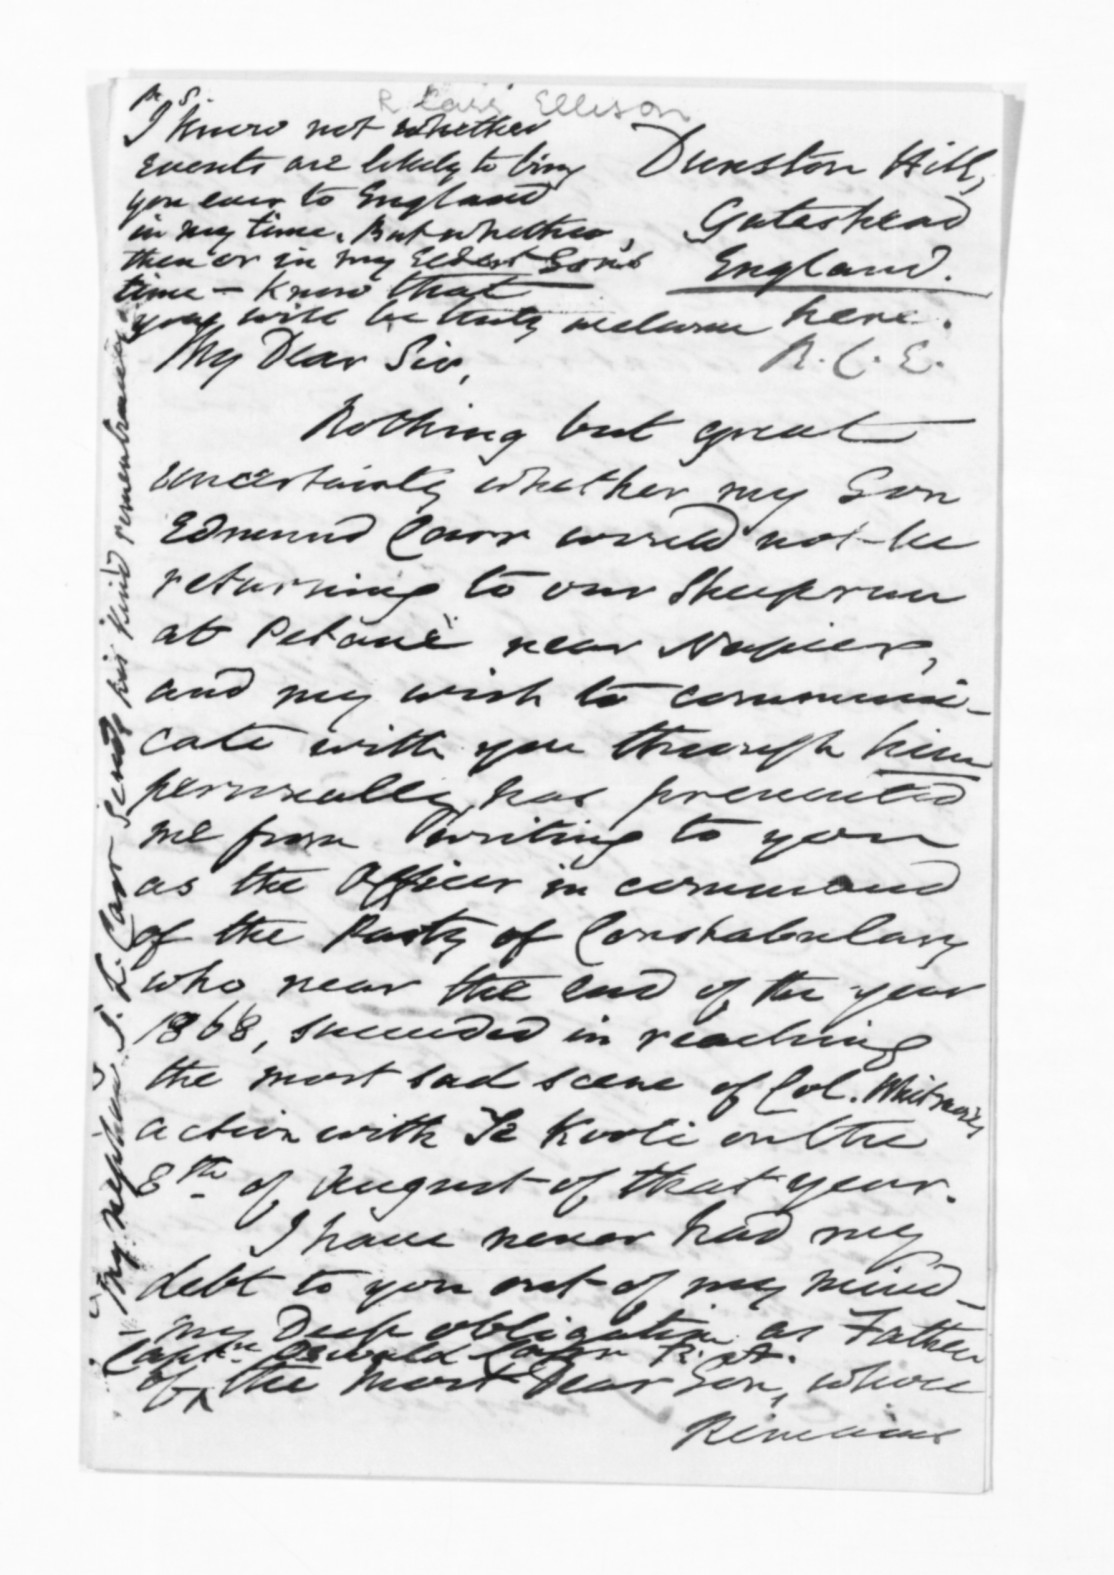 R Carr Ellison
P. S.
I know not whether
events are likely to bring
you ever to England
in my time. But whether,
then or in my Eldest Son's
time — know that
you will be truly welcome here.
R. C. E.
Dunston Hill,
Gateshead
England.
My Dear Sir,
Nothing but great
uncertainty whether my Son
Edmund Carr would not be
returning to our Sheeprun
at Petane near Napier,
and my wish to communi-
cate with you through him
personally, has prevented
me from writing to you
as the Officer in command
of the Party of Constabulary
who near the end of the year
1868, succeeded in reaching
the most sad scene of Col. Whitmore's
action with Te Kooti on the
8th of August of that year.
I have never had my
debt to you out of my mind –
– my Deep obligation as Father
Captn. Oswald Carr R. A.
of ^ the most Dear Son, whose
Remains
My nephew S. L. Carr sends his kind remembrances